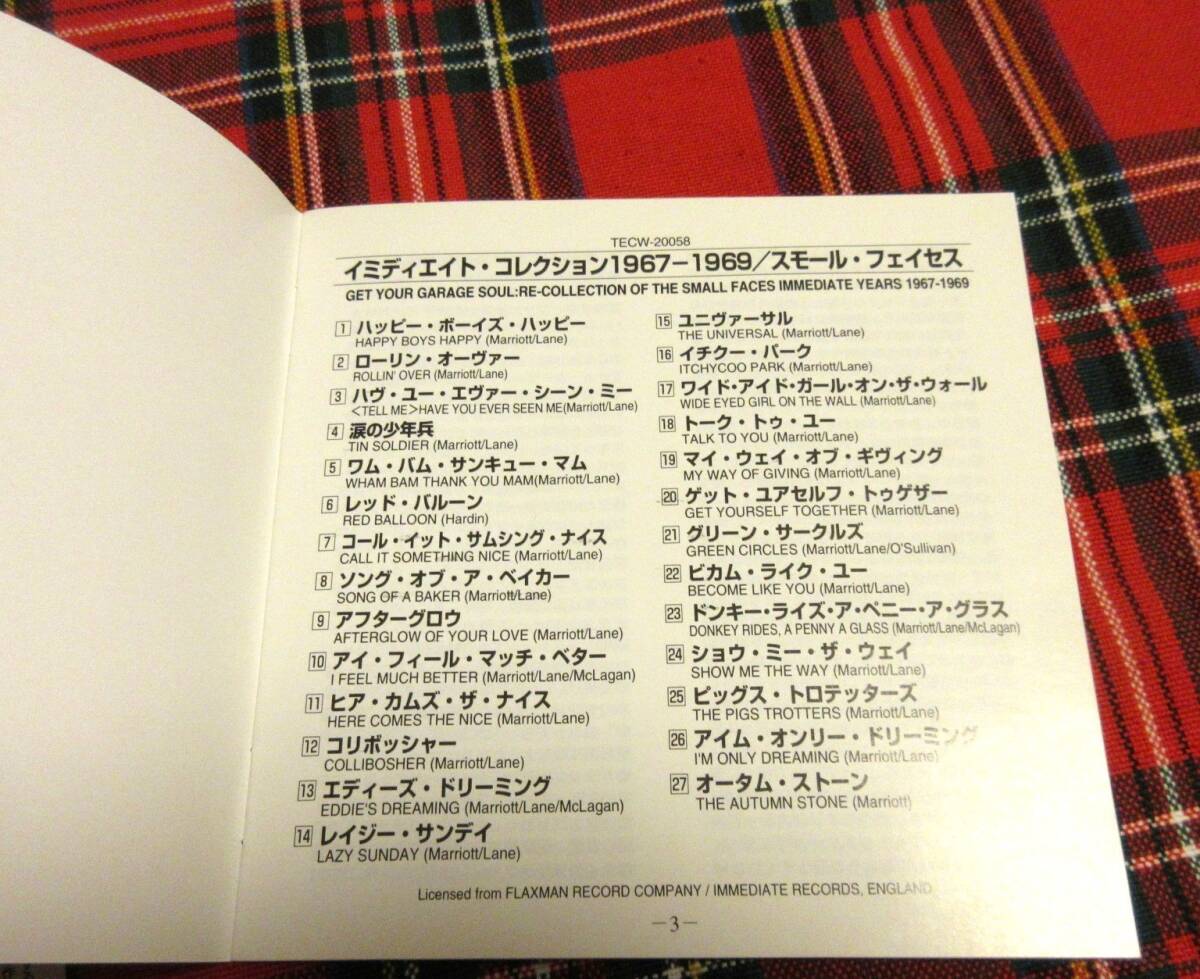 TECW-20058
イミディエイト・コレクション1967−1969/スモール・フェイセス
GET YOUR GARAGE SOUL:RE-COLLECTION OF THE SMALL FACES IMMEDIATE YEARS 1967-1969
1 ハッピー・ボーイズ・ハッピー
HAPPY BOYS HAPPY (Marriott/Lane)
2 ローリン・オーヴァー
ROLLIN' OVER (Marriott/Lane)
3 ハヴ・ユー・エヴァー・シーン・ミー
<TELL ME>HAVE YOU EVER SEEN ME(Marriott/Lane)
4 涙の少年兵
TIN SOLDIER (Marriott/Lane)
5 ワム・バム・サンキュー・マム
WHAM BAM THANK YOU MAM(Marriott/Lane)
6 レッド・バルーン
RED BALLOON (Hardin)
7 コール・イット・サムシング・ナイス
CALL IT SOMETHING NICE (Marriott/Lane)
8 ソング・オブ・ア・ベイカー
SONG OF A BAKER (Marriott/Lane)
9 アフターグロウ
AFTERGLOW OF YOUR LOVE (Marriott/Lane)
10 アイ・フィール・マッチ・ベター
I FEEL MUCH BETTER (Marriott/Lane/McLagan)
11 ヒア・カムズ・ザ・ナイス
HERE COMES THE NICE (Marriott/Lane)
12 コリボッシャー
COLLIBOSHER (Marriott/Lane)
13 エディーズ・ドリーミング
EDDIE'S DREAMING (Marriott/Lane/McLagan)
14 レイジー・サンデイ
LAZY SUNDAY (Marriott/Lane)
15 ユニヴァーサル
THE UNIVERSAL (Marriott/Lane)
16 イチクー・パーク
ITCHYCOO PARK (Marriott/Lane)
17 ワイド・アイド・ガール・オン・ザ・ウォール
WIDE EYED GIRL ON THE WALL (Marriott/Lane)
18 トーク・トゥ・ユー
TALK TO YOU (Marriott/Lane)
19 マイ・ウェイ・オブ・ギヴィング
MY WAY OF GIVING (Marriott/Lane)
20 ゲット・ユアセルフ・トゥゲザー
GET YOURSELF TOGETHER (Marriott/Lane)
21 グリーン・サークルズ
GREEN CIRCLES (Marriott/Lane/O'Sullivan)
22 ビカム・ライク・ユー
BECOME LIKE YOU (Marriott/Lane)
23 ドンキー・ライズ・ア・ペニー・ア・グラス
DONKEY RIDES, A PENNY A GLASS (Marriott/Lane/McLagan)
24 ショウ・ミー・ザ・ウェイ
SHOW ME THE WAY (Marriott/Lane)
25 ピッグス・トロテッターズ
THE PIGS TROTTERS (Marriott/Lane)
26 アイム・オンリー・ドリーミング
I'M ONLY DREAMING (Marriott/Lane)
27 オータム・ストーン
THE AUTUMN STONE (Marriott)
Licensed from FLAXMAN RECORD COMPANY / IMMEDIATE RECORDS, ENGLAND
−3−